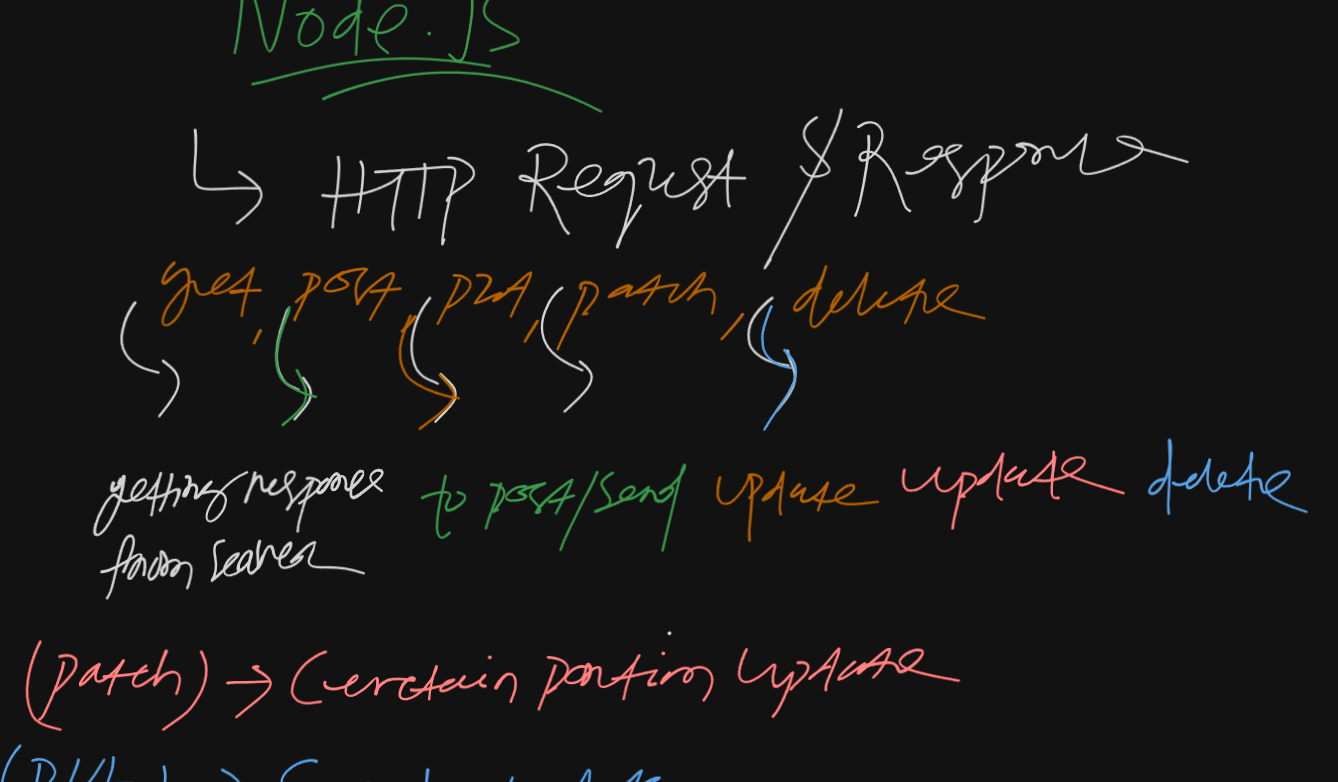 Node.JS
HTTP Request / Response
get, post, put, patch, delete
getting response to post/send update update delete
from server
(patch) → Certain portion update